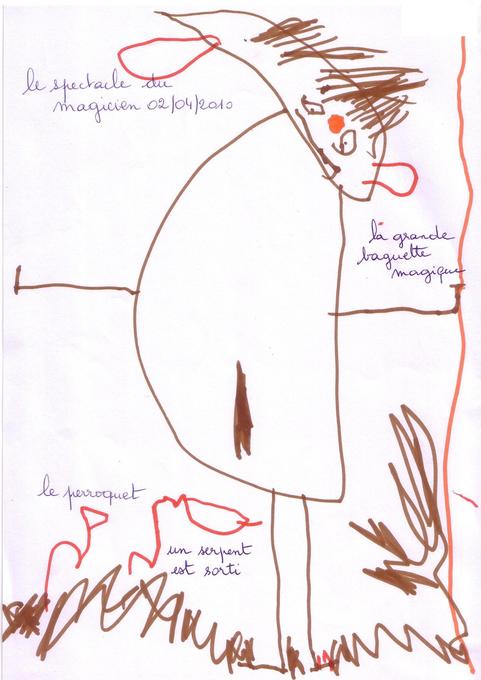 le spectacle du
magicien 02/04/2010
la grande
baguette
magique
le perroquet
un serpent
est sorti